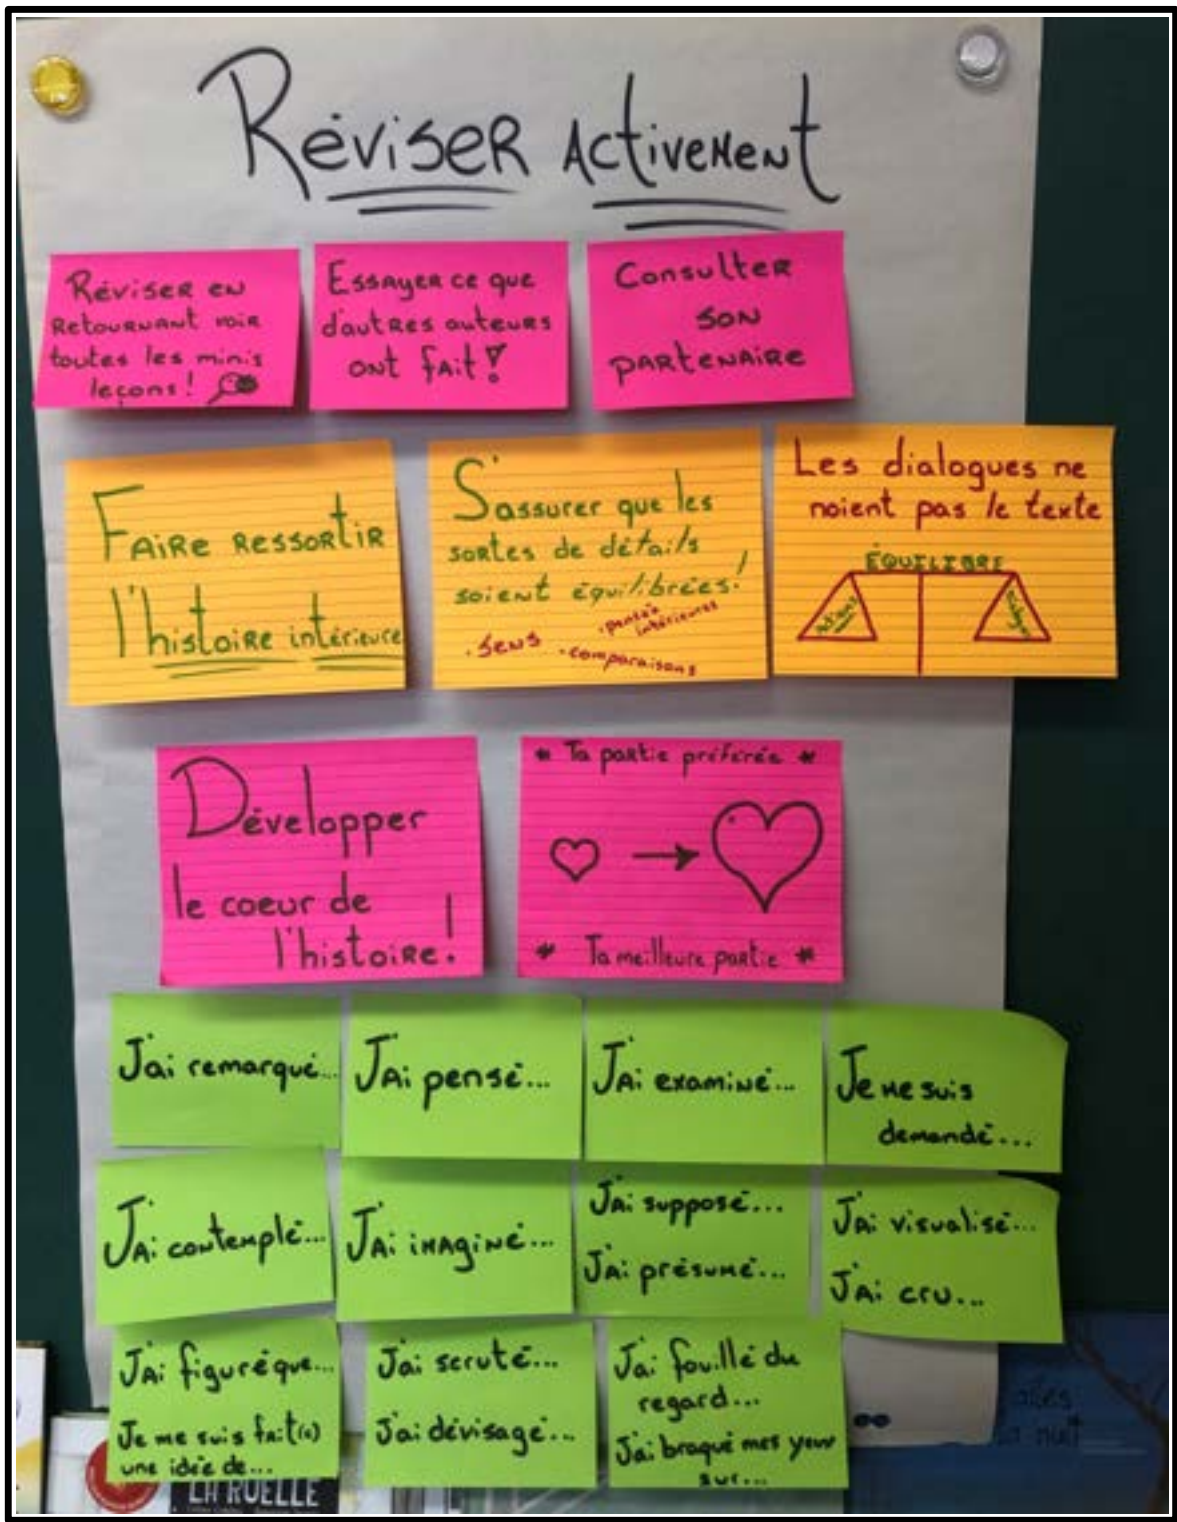 Réviser activement
Réviser en
retournant voir
toutes les minis
leçons!
Essayer ce que
d'autres auteurs
ont fait!
Consulter
son
partenaire
Faire ressortir
l'histoire intérieure
S'assurer que les
sortes de détails
soient équilibrées!
. sens
. pensées
intérieures
. comparaisons
Les dialogues ne
noient pas le texte
ÉQUILIBRE
Développer
le coeur de
l'histoire!
* Ta partie préférée *
* Ta meilleure partie *
J'ai remarqué...
J'ai pensé...
J'ai examiné...
Je me suis
demandé...
J'ai contemplé...
J'ai imaginé...
J'ai supposé...
J'ai présumé...
J'ai visualisé...
J'ai cru...
J'ai figuré que...
Je me suis fait(e)
une idée de...
J'ai scruté...
J'ai dévisagé...
J'ai fouillé du
regard...
J'ai braqué mes yeux
sur...
LA RUELLE